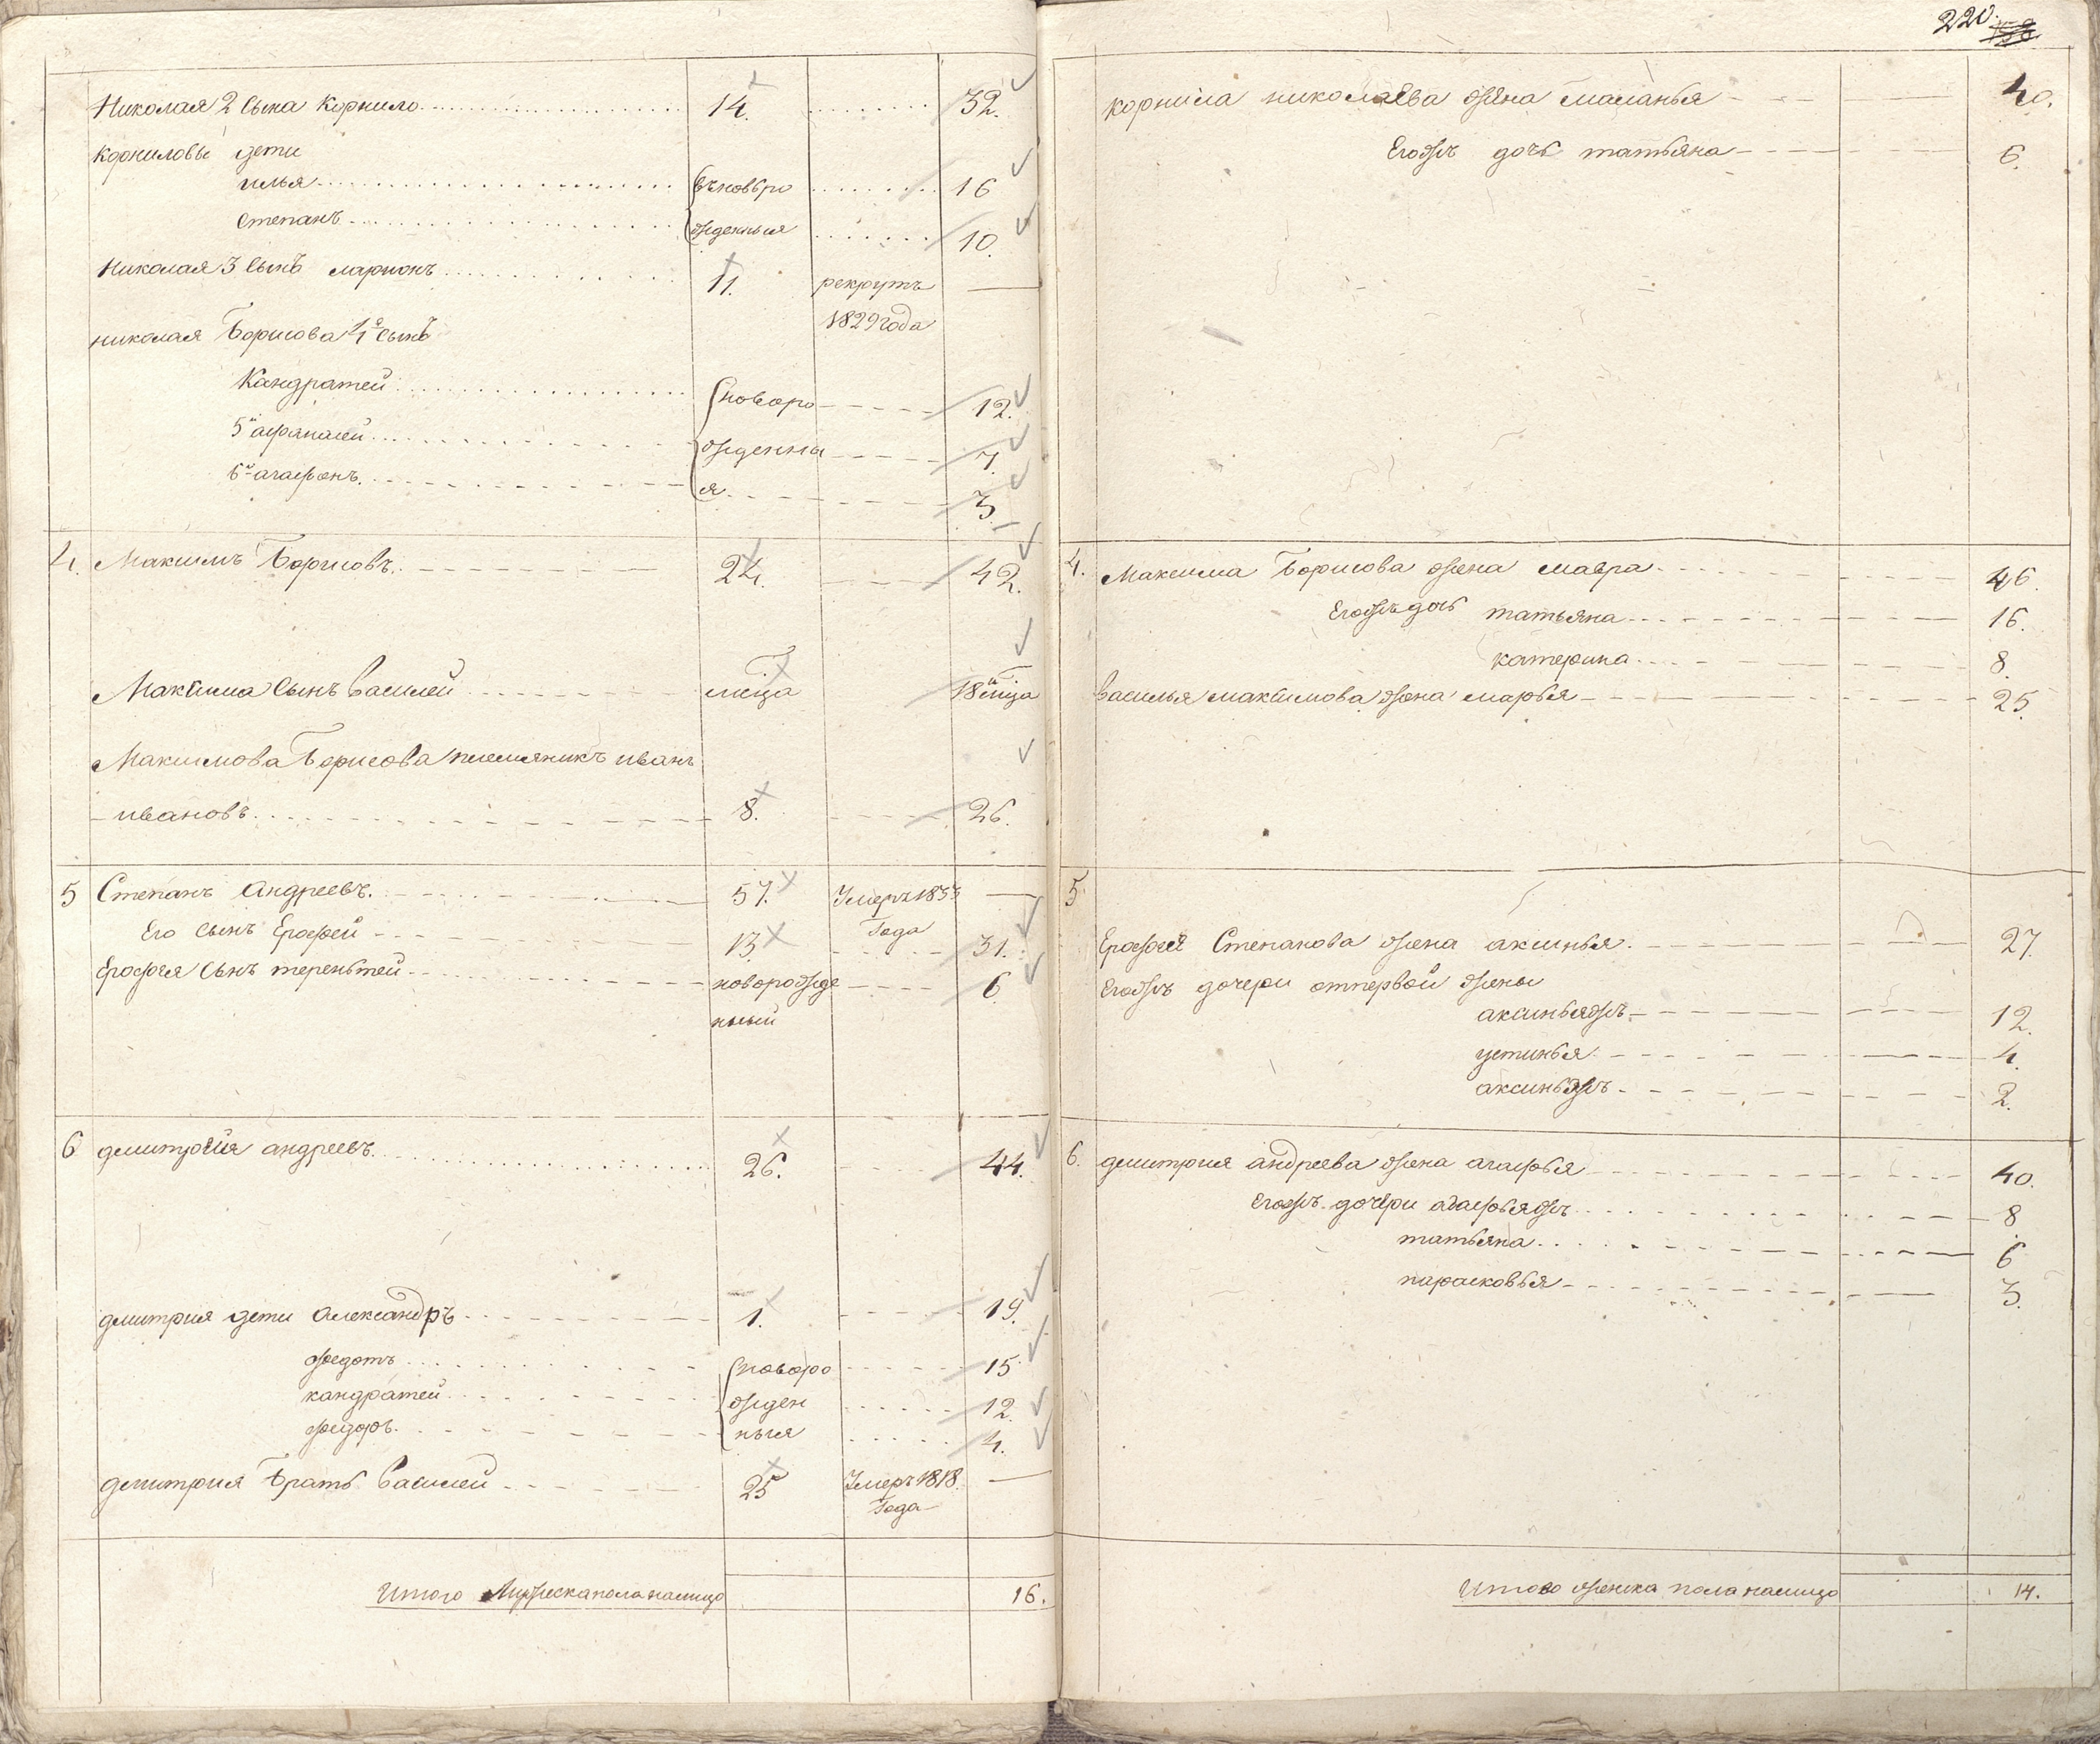 Николая 2 сына Корнило 14. 32.
корниловы дети
илья вновьро 16
степанъ жденныя 10.
Николая 3 сынъ ларионъ 11. рекрутъ —
1829 года
николая Борисова 4й сынъ
Кандратей новоро 12.
5й афанасей жденны 7.
6й агафонъ я 3.
4. Максимъ Борисовъ 24. 42.
Максима сынъ Василей 18
Максимова Борисова племяникъ иванъ
ивановъ 8. 26.
5 Степанъ Андреевъ 57. Умеръ 1833 —
Года
Его сынъ Ерофей 13. 31.
Ерофея сынъ терентей новорожде 6
нный
6 дмитрей андреевъ 26. 44.
дмитрия дети Александръ 1. 19.
федотъ новоро 15
кандратей жден 12.
федоръ ныя 4.
дмитрия Братъ Василей 25 Умеръ 1818 —
Года
Итого Мужеска пола налицо 16.
220.
корнила николаева жена маланья 40.
Егожъ дочь татьяна 6.
4. Максима Борисова жена мавра 46.
Егожъ дочь татьяна 16.
катерина 8.
Василья максимова жена марья 25.
5
Ерофея Степанова жена аксинья 27.
Егожъ дочери отпервой жены
аксиньяжъ 12.
устинья 4.
аксиньяжъ 2.
6. дмитрия андреева жена агафья 40.
Егожъ дочери агафьяжъ 8
татьяна 6
парасковья 3.
Итого женска пола налицо 14.